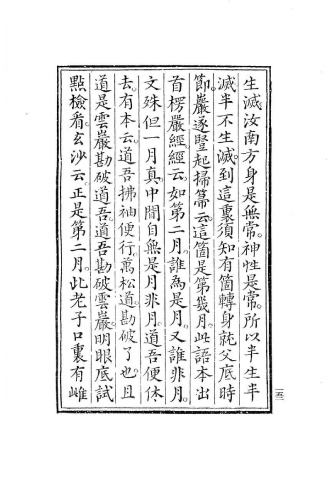 生滅汝南方身是無常。神性是常。所以半生半
滅半不生滅。到這裏須知有箇轉身就父底時
節。巖遂豎起掃箒云。這箇是第幾月。此語本出
首楞嚴經。經云。如第二月。誰為是月。又誰非月。
文殊但一月真。中間自無是月非月。道吾便休
去。有本云。道吾拂袖便行。萬松道勘破了也。且
道是雲巖勘破道吾。道吾勘破雲巖。明眼底試
點檢看。玄沙云。正是第二月。此老子口裏有雌